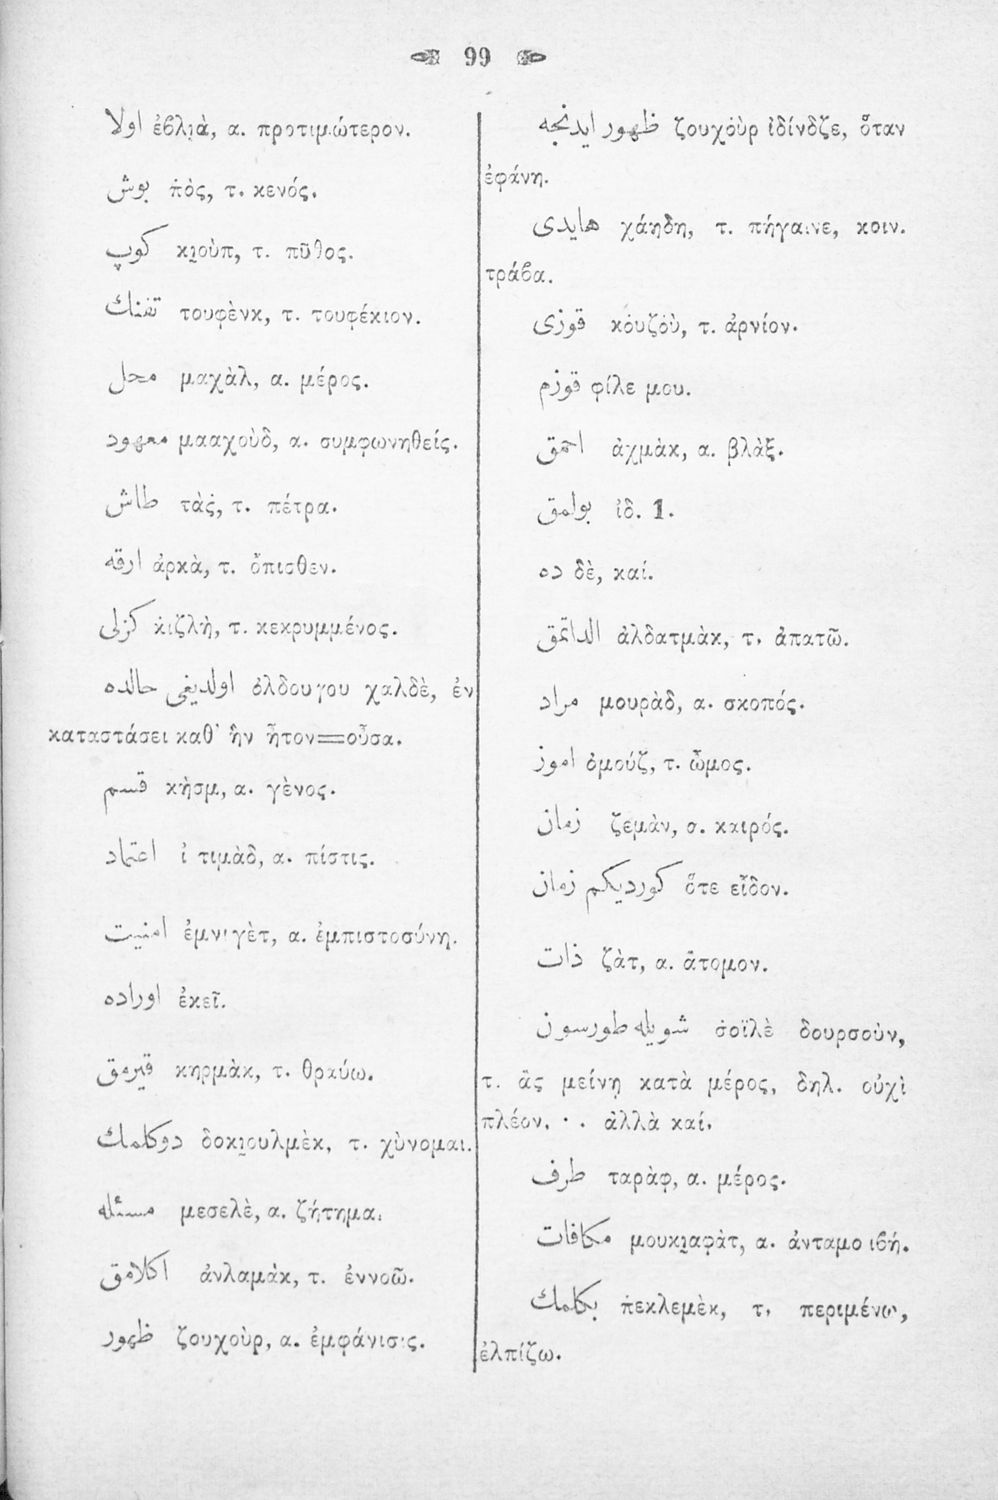 99
اولا ἐϐλι̯ὰ, α. προτιμώτερον.
بوش π̇ὸς, τ. κενός.
كوپ κι̯οὺπ, τ. πῦθος.
تفنك τουφὲνκ, τ. τουφέκιον.
محل μαχὰλ, α. μέρος.
معهود μααχοὺδ, α. συμφωνηθείς.
طاش τὰς̇, τ. πέτρα.
ارقه ἀρκὰ, τ. ὄπισθεν.
كزلى κ̇ιζλὴ, τ. κεκρυμμένος.
اولديغى حالده ὀλδουγου χαλδὲ, ἐν
καταστάσει καθ' ἣν ἦτον=οὖσα.
قسم κὴσμ, α. γὲνος.
اعتماد ἰ τιμὰδ, α. πίστις.
امنيت ἐμνιγὲτ, α. ἐμπιστοσύνη.
اوراده ἐκεῖ.
قيرمق κηρμὰκ, τ. θραύω.
دوكلمك δοκι̯ουλμὲκ, τ. χὺνομαι.
مسئله μεσελὲ, α. ζήτημα.
اكلامق ἀνλαμὰκ, τ. ἐννοῶ.
ظهور ζουχοὺρ, α. ἐμφάνισις.
ظهور ايدنجه ζουχοὺρ ἰδίνδζε, ὅταν
ἐφάνη.
هايدى χάηδη, τ. πήγαινε, κοιν.
τράϐα.
قوزى κόυζοὺ, τ. ἀρνίον.
قوزم φίλε μου.
احمق ἀχμὰκ, α. βλὰξ.
بولمق ἰδ. 1.
ده δὲ, καί.
الداتمق ἀλδατμὰκ, τ. ἀπατῶ.
مراد μουρὰδ, α. σκοπός.
اموز ὀμούζ, τ. ὦμος.
زمان ζεμὰν, α. καιρός.
كورديكم زمان ὅτε εἶδον.
ذات ζὰτ, α. ἄτομον.
شويله طورسون σ̇οϊλὲ δουρσοὺν,
τ. ἂς μείνῃ κατὰ μέρος, δηλ. οὐχὶ
πλέον. . . ἀλλὰ καί.
طرف ταρὰφ, α. μέρος.
مكافات μουκι̯αφὰτ, α. ἀνταμοιϐή.
بكلمك π̇εκλεμὲκ, τ. περιμένω,
ἐλπίζω.